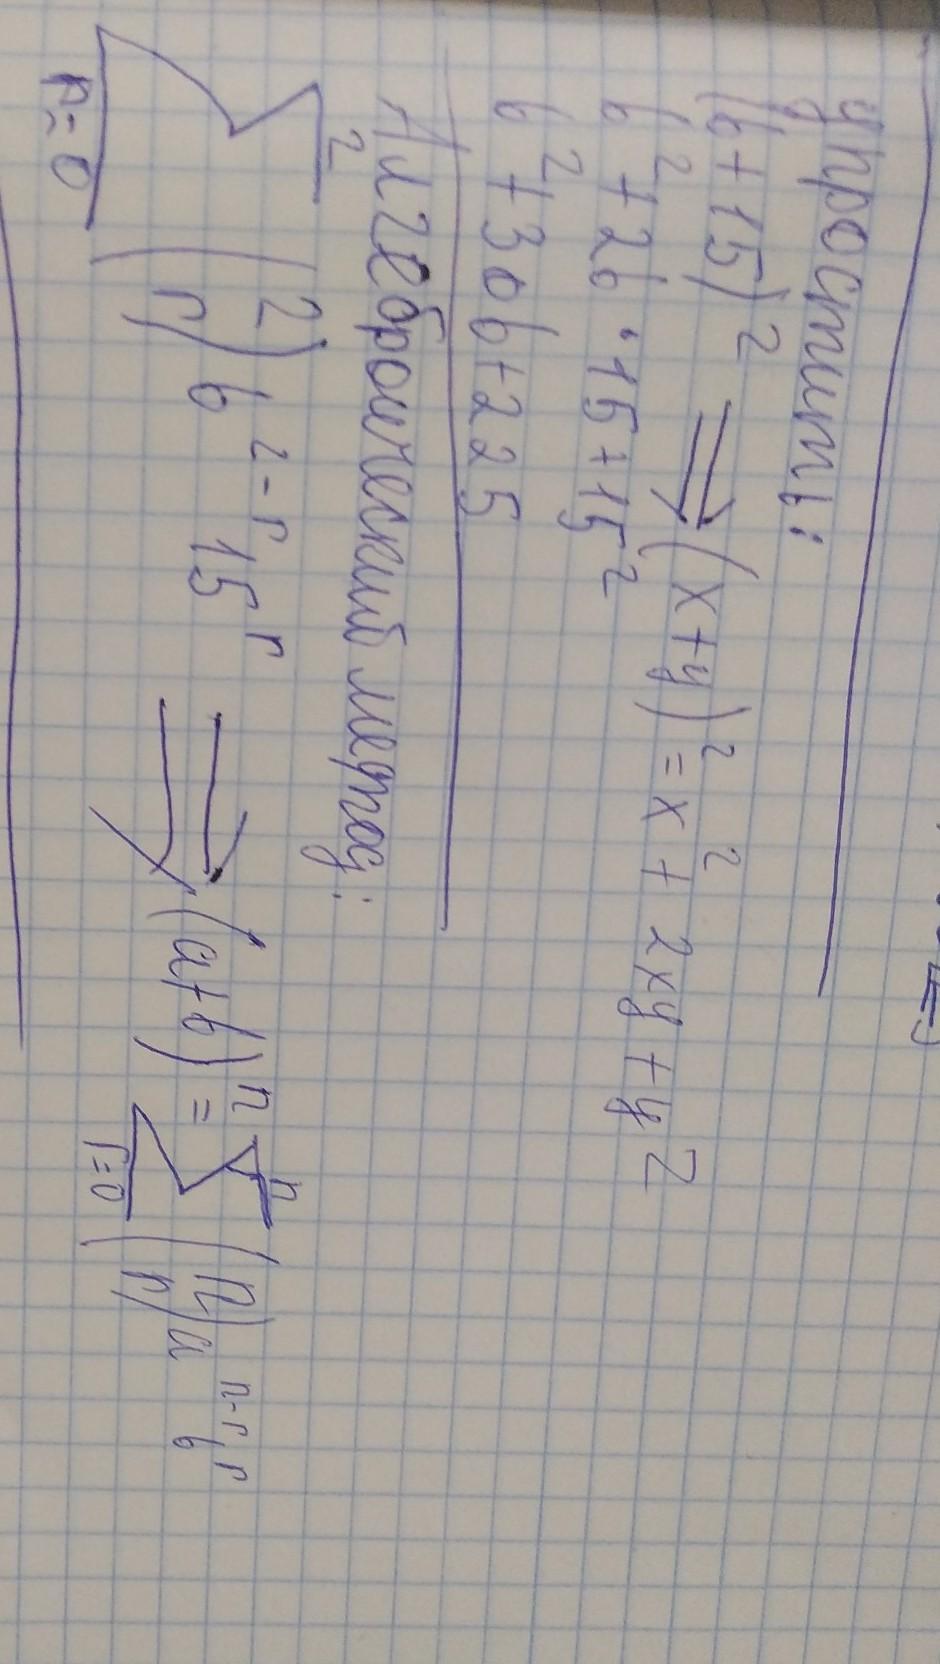 Упростить:
(b+15)² ⇒ (x+y)² = x² + 2xy + y²
b² + 2b · 15 + 15²
b² + 30b + 225
Алгебраический метод:
∑_{r=0}^{2} (2 r) b^{2-r} 15^r ⇒ (a+b)^n = ∑_{r=0}^{n} (n r) a^{n-r} b^r